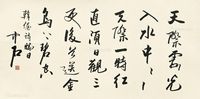 天際霞光
入水中水中
天際一時紅
直須日觀三
更後首送金
烏上碧空
韓偓詩曉日
中石